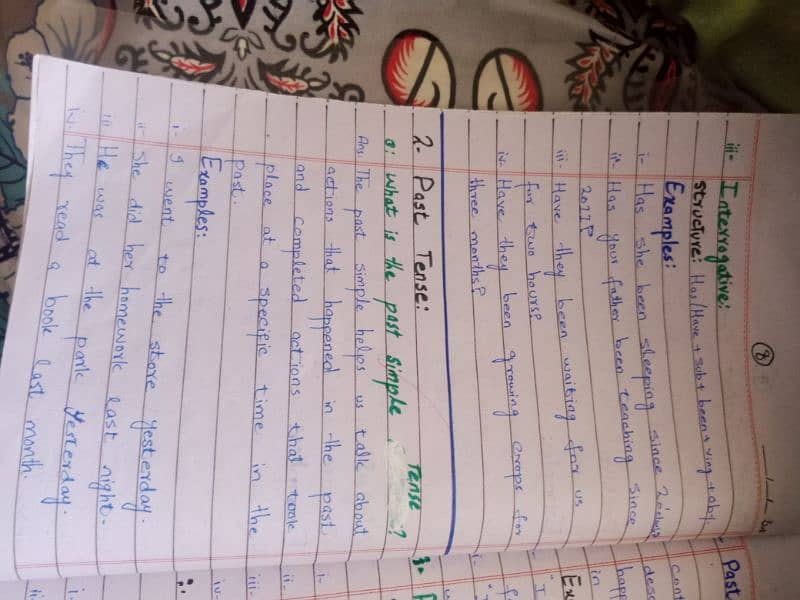 8
iii- Interrogative:
structure: Has/Have + sub + been + ving + obj
Examples:
i- Has she been sleeping since
ii- Has your father been teaching since
iii- Have they been waiting for us
for two hours?
iv- Have they been growing crops for
three months?
2- Past Tense:
Q: What is the past simple Tense?
Ans: The past simple helps us talk about
actions that happened in the past
and completed actions that took
place at a specific time in the
past.
Examples:
i- I went to the store yesterday.
ii- She did her homework last night.
iii- He was at the park yesterday.
iv. They read a book last month.
Past
cont
desc
happ
in
Ex
i.
3-
i-
ii-
iii-
iv-
i-